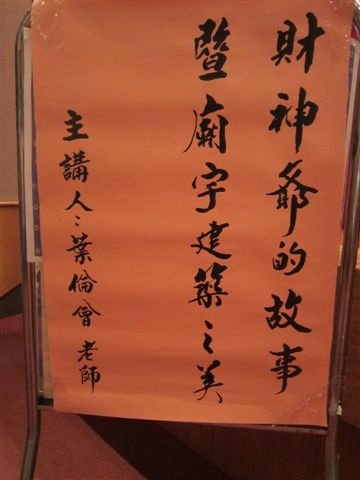 財神爺的故事
暨廟宇建築之美
主講人：葉倫會老師